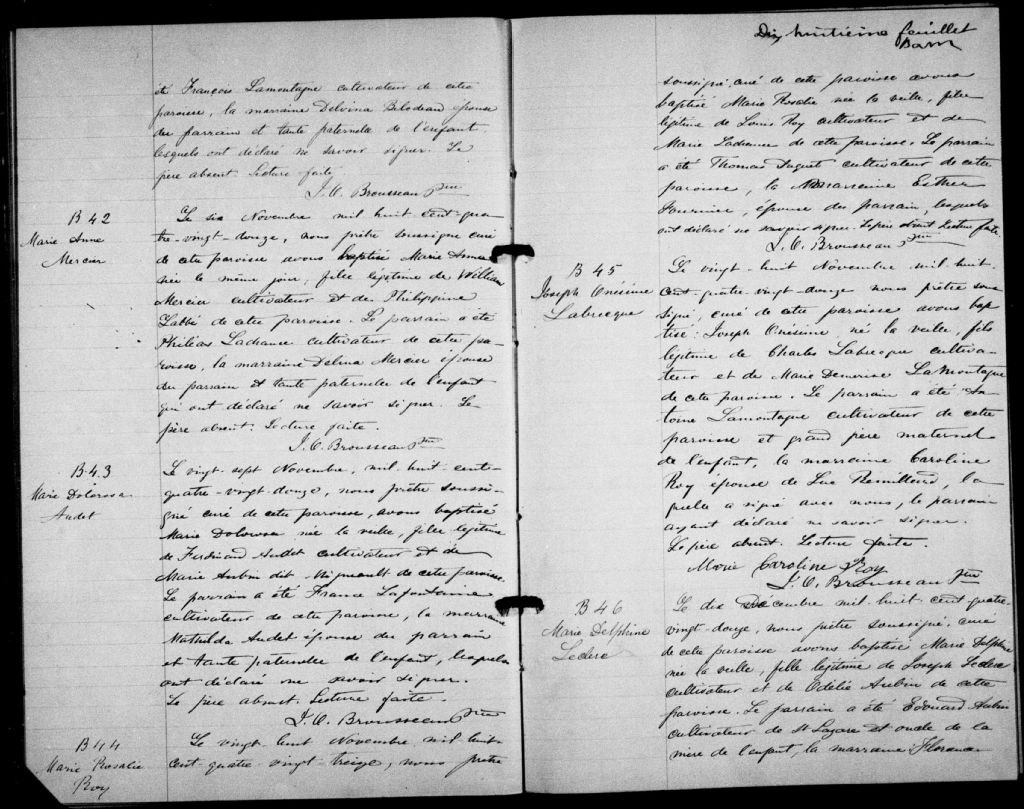 été François Lamontagne cultivateur de cette
paroisse, la marraine Delvina Bilodeau épouse
du parrain et tante paternelle de l'enfant,
lesquels ont déclaré ne savoir signer. Le
père absent. Lecture faite.
J. O. Brousseau Ptre
B 42
Marie Anne
Mercier
Le six Novembre mil huit cent qua
tre-vingt-douze, nous prêtre soussigné curé
de cette paroisse avons baptisé Marie Anna
née le même jour, fille légitime de William
Mercier cultivateur et de Philippine
Labbé de cette paroisse. Le parrain a été
Philias Ladrance cultivateur de cette pa-
roisse, la marraine Delina Mercier épouse
du parrain et tante paternelle de l'enfant
qui ont déclaré ne savoir signer. Le
père absent. Lecture faite.
J. O. Brousseau Ptre
B 43
Marie Dolorosa
Audet
Le vingt sept Novembre, mil huit cent-
quatre-vingt-douze, nous prêtre soussi-
gné curé de cette paroisse, avons baptisé
Marie Dolorosa née la veille, fille légitime
de Ferdinand Audet cultivateur et de
Marie Aubin dit Mignault de cette paroisse.
Le parrain a été France Lafontaine
cultivateur de cette paroisse, la marraine
Mathilda Audet épouse du parrain
et tante paternelle de l'enfant, lesquels
ont déclaré ne savoir signer.
Le père absent. Lecture faite.
J. O. Brousseau Ptre
B 44
Marie Rosalie
Roy
Le vingt huit Novembre mil huit
cent-quatre-vingt-treize, nous prêtre
Dix huitième feuillet
soussigné, curé de cette paroisse avons
baptisé Marie Rosalie née la veille, fille
légitime de Louis Roy cultivateur et de
Marie Ladrance de cette paroisse. Le parrain
a été Thomas cultivateur de cette
paroisse, la Marraine Esther
Fournier, épouse du parrain, lesquels
ont déclaré ne savoir signer. Le père absent Lecture faite.
J. O. Brousseau Ptre
B 45
Joseph Onésime
Labrecque
Le vingt-huit Novembre mil-huit-
cent-quatre-vingt-douze nous prêtre sous
signé, curé de cette paroisse avons bap
tisé Joseph Onésime né la veille, fils
légitime de Charles Labrecque cultiva-
teur et de Marie Demerise Lamontagne
de cette paroisse. Le parrain a été An-
toine Lamontagne cultivateur de cette
paroisse et grand père maternel
de l'enfant, la marraine Caroline
Roy épouse de Luc Remillard, la
quelle a signé avec nous, le parrain
ayant déclaré ne savoir signer.
Le père absent. Lecture faite.
Marie Caroline Roy
J. O. Brousseau Ptre
B 46
Marie Delphine
Leclerc
Le dix Décembre mil-huit cent quatre-
vingt-douze, nous prêtre soussigné, curé
de cette paroisse avons baptisé Marie Delphine
née la veille, fille légitime de Joseph Leclerc
cultivateur et de Odélie Aubin de cette
paroisse. Le parrain a été Edouard Aubin
cultivateur de St Lazare et oncle de la
mère de l'enfant, la marraine